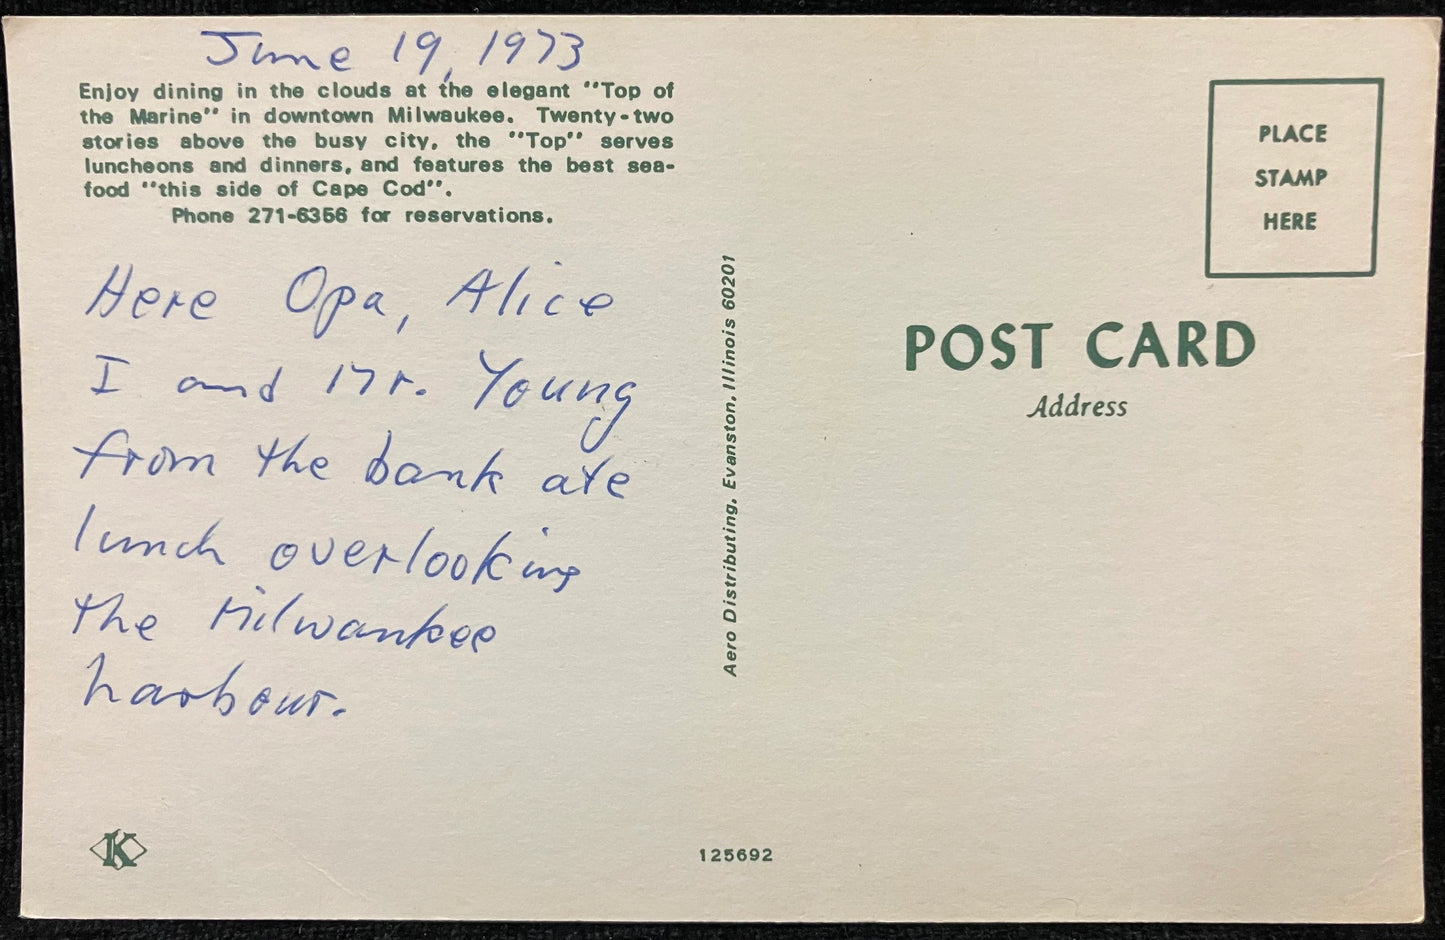 June 19, 1973
Enjoy dining in the clouds at the elegant "Top of
the Marine" in downtown Milwaukee. Twenty-two
stories above the busy city, the "Top" serves
luncheons and dinners, and features the best sea-
food "this side of Cape Cod".
Phone 271-6356 for reservations.
Here Opa, Alice
I and Mr. Young
from the bank ate
lunch overlooking
the Milwaukee
harbour.
K
125692
Aero Distributing, Evanston, Illinois 60201
PLACE
STAMP
HERE
POST CARD
Address